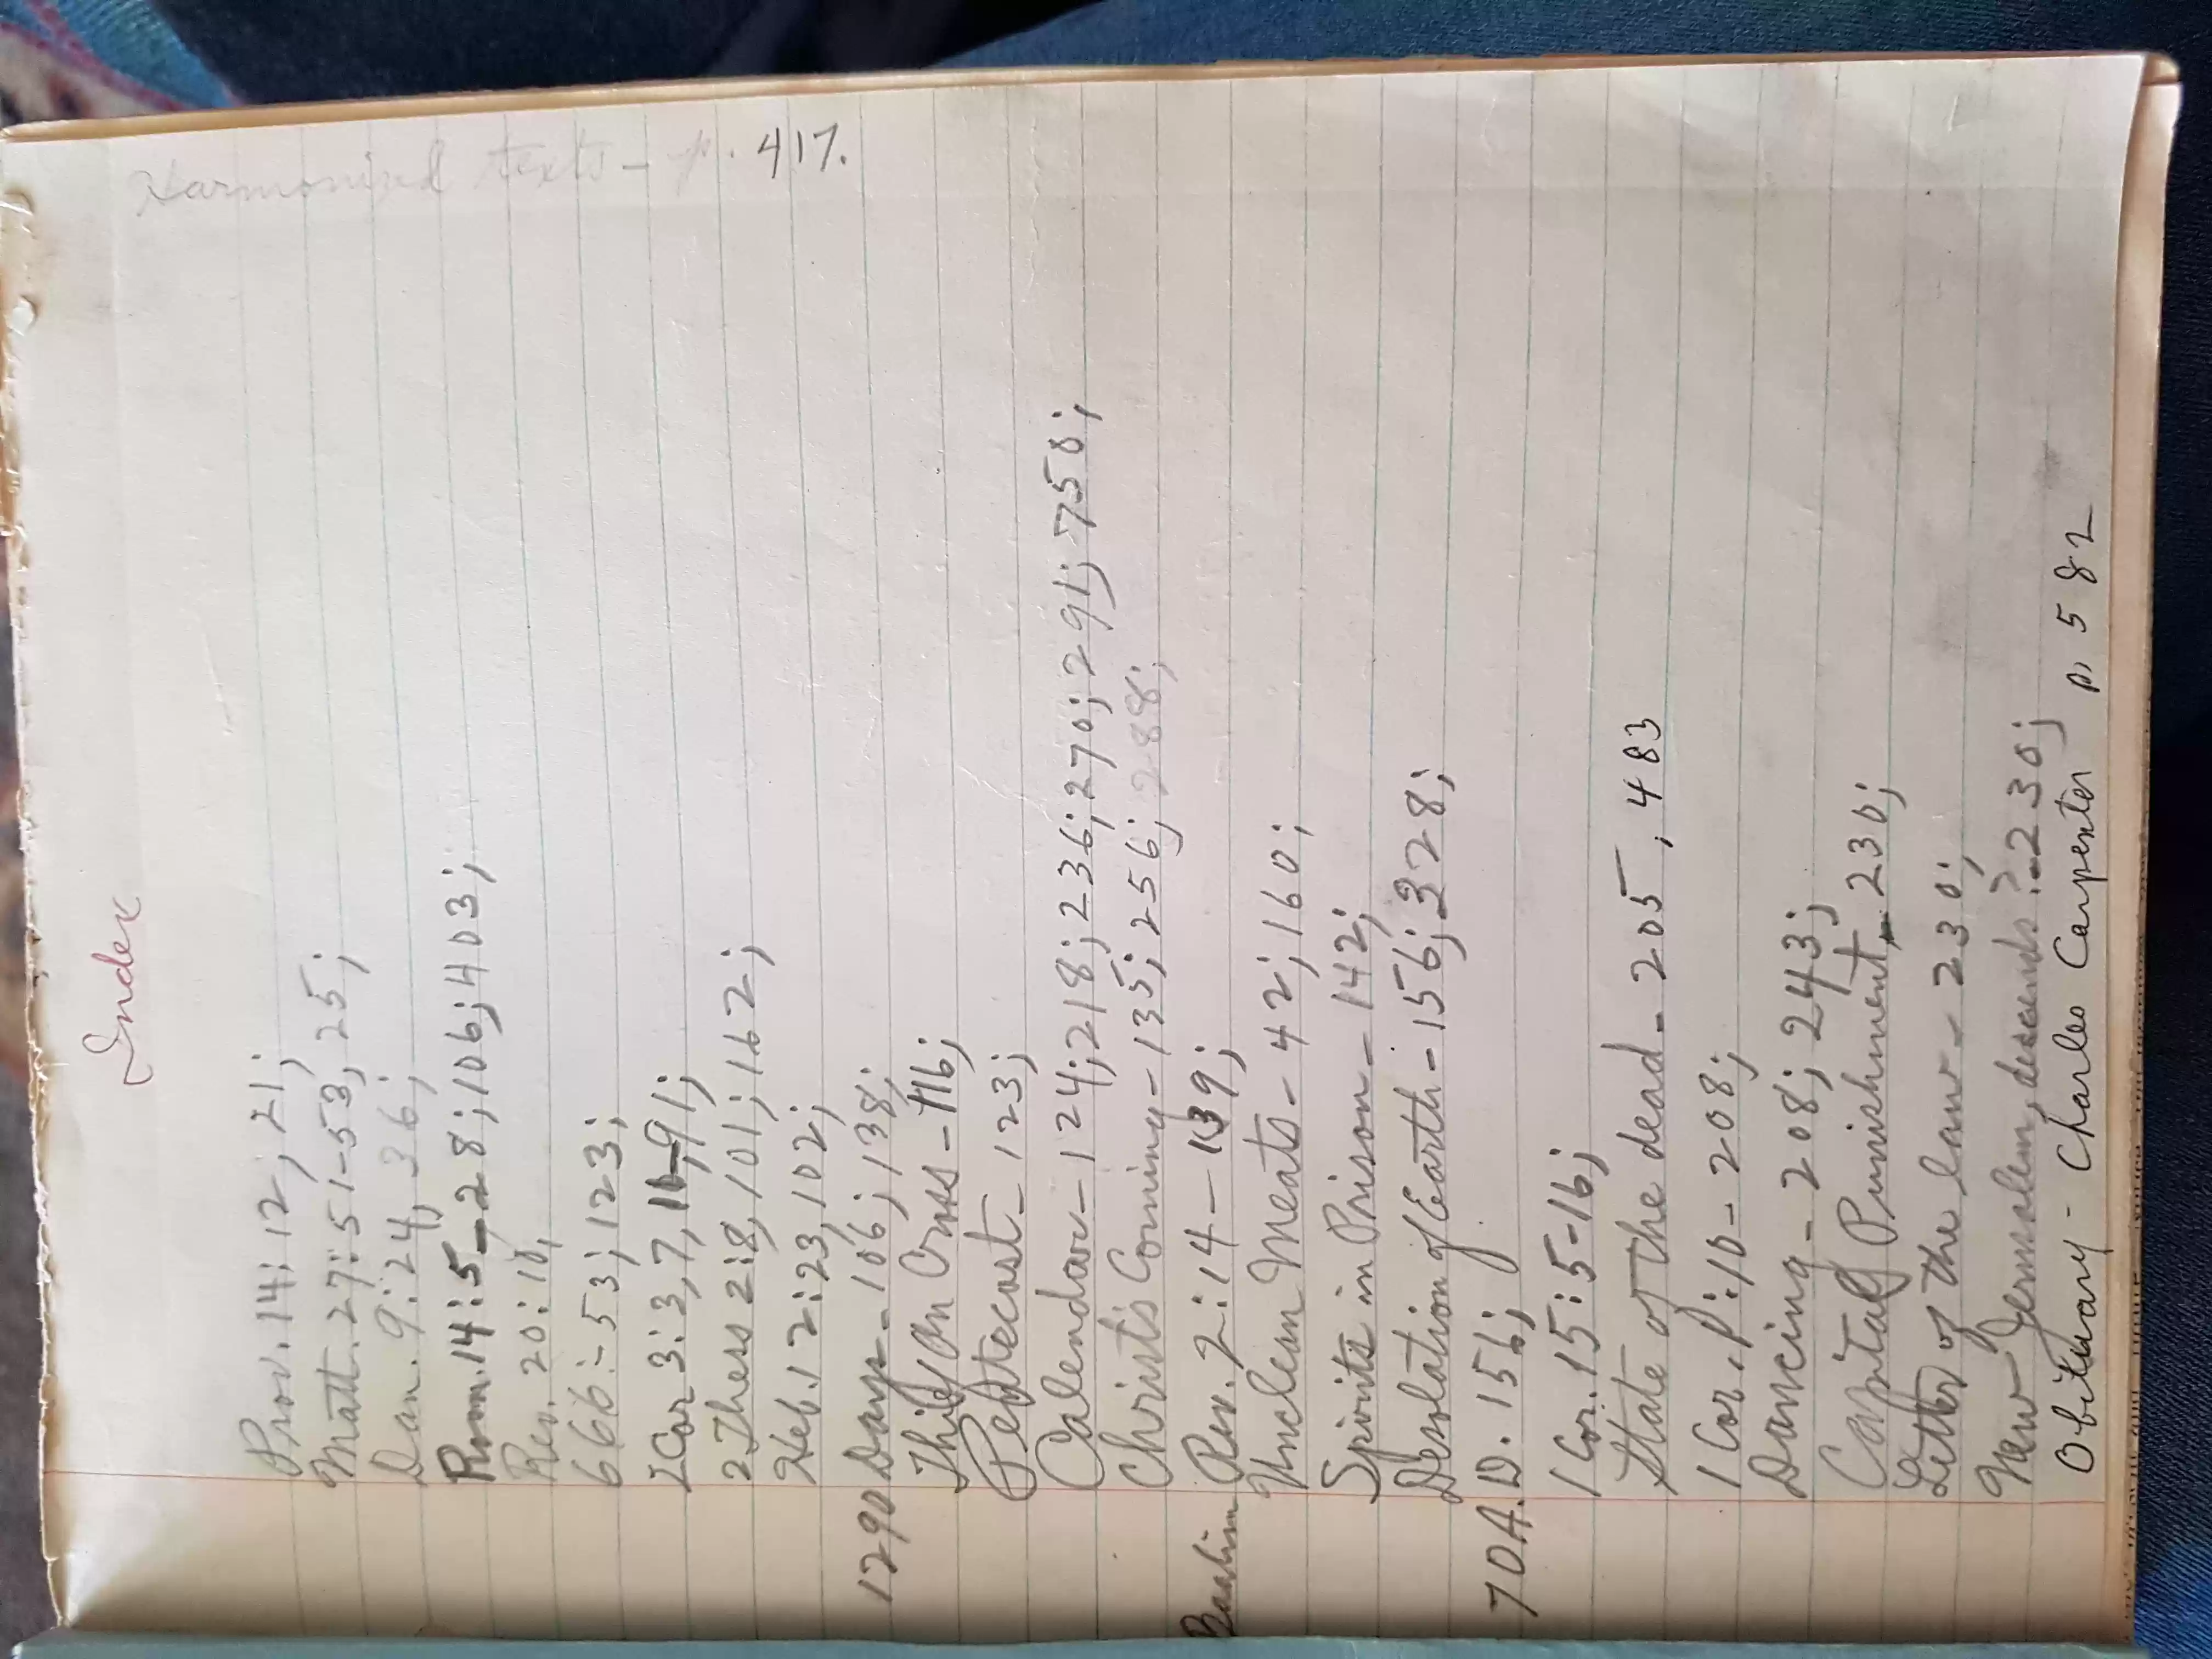 Index
Harmonized texts - p. 417.
Prov. 14:12, 21;
Matt. 27:51-53, 25;
Dan. 9:24, 36;
Rom. 14:5-28; 106; 403;
Rev. 20:10,
666:-53; 123;
1 Cor 3:3,7, 91;
2 Thess 2:8, 101; 162;
Heb. 12:23, 102;
1290 Days-106; 138;
Thief on Cross-116;
Pentecost-123;
Calendar-124; 218; 236; 270; 291; 750;
Christ's Coming-135; 256; 288;
Baalim Rev. 2:14-139;
Unclean Meats-42; 160;
Spirits in Prison-142;
Desolation of Earth-156; 328;
70 A.D. 156;
1 Cor. 15:5-16;
State of the dead-205, 483
1 Cor. P:10-208;
Dancing-208; 243;
Capital Punishment-230;
Letter of the law-230;
New Jerusalem, descends?-230;
Obituary - Charles Carpenter p. 582